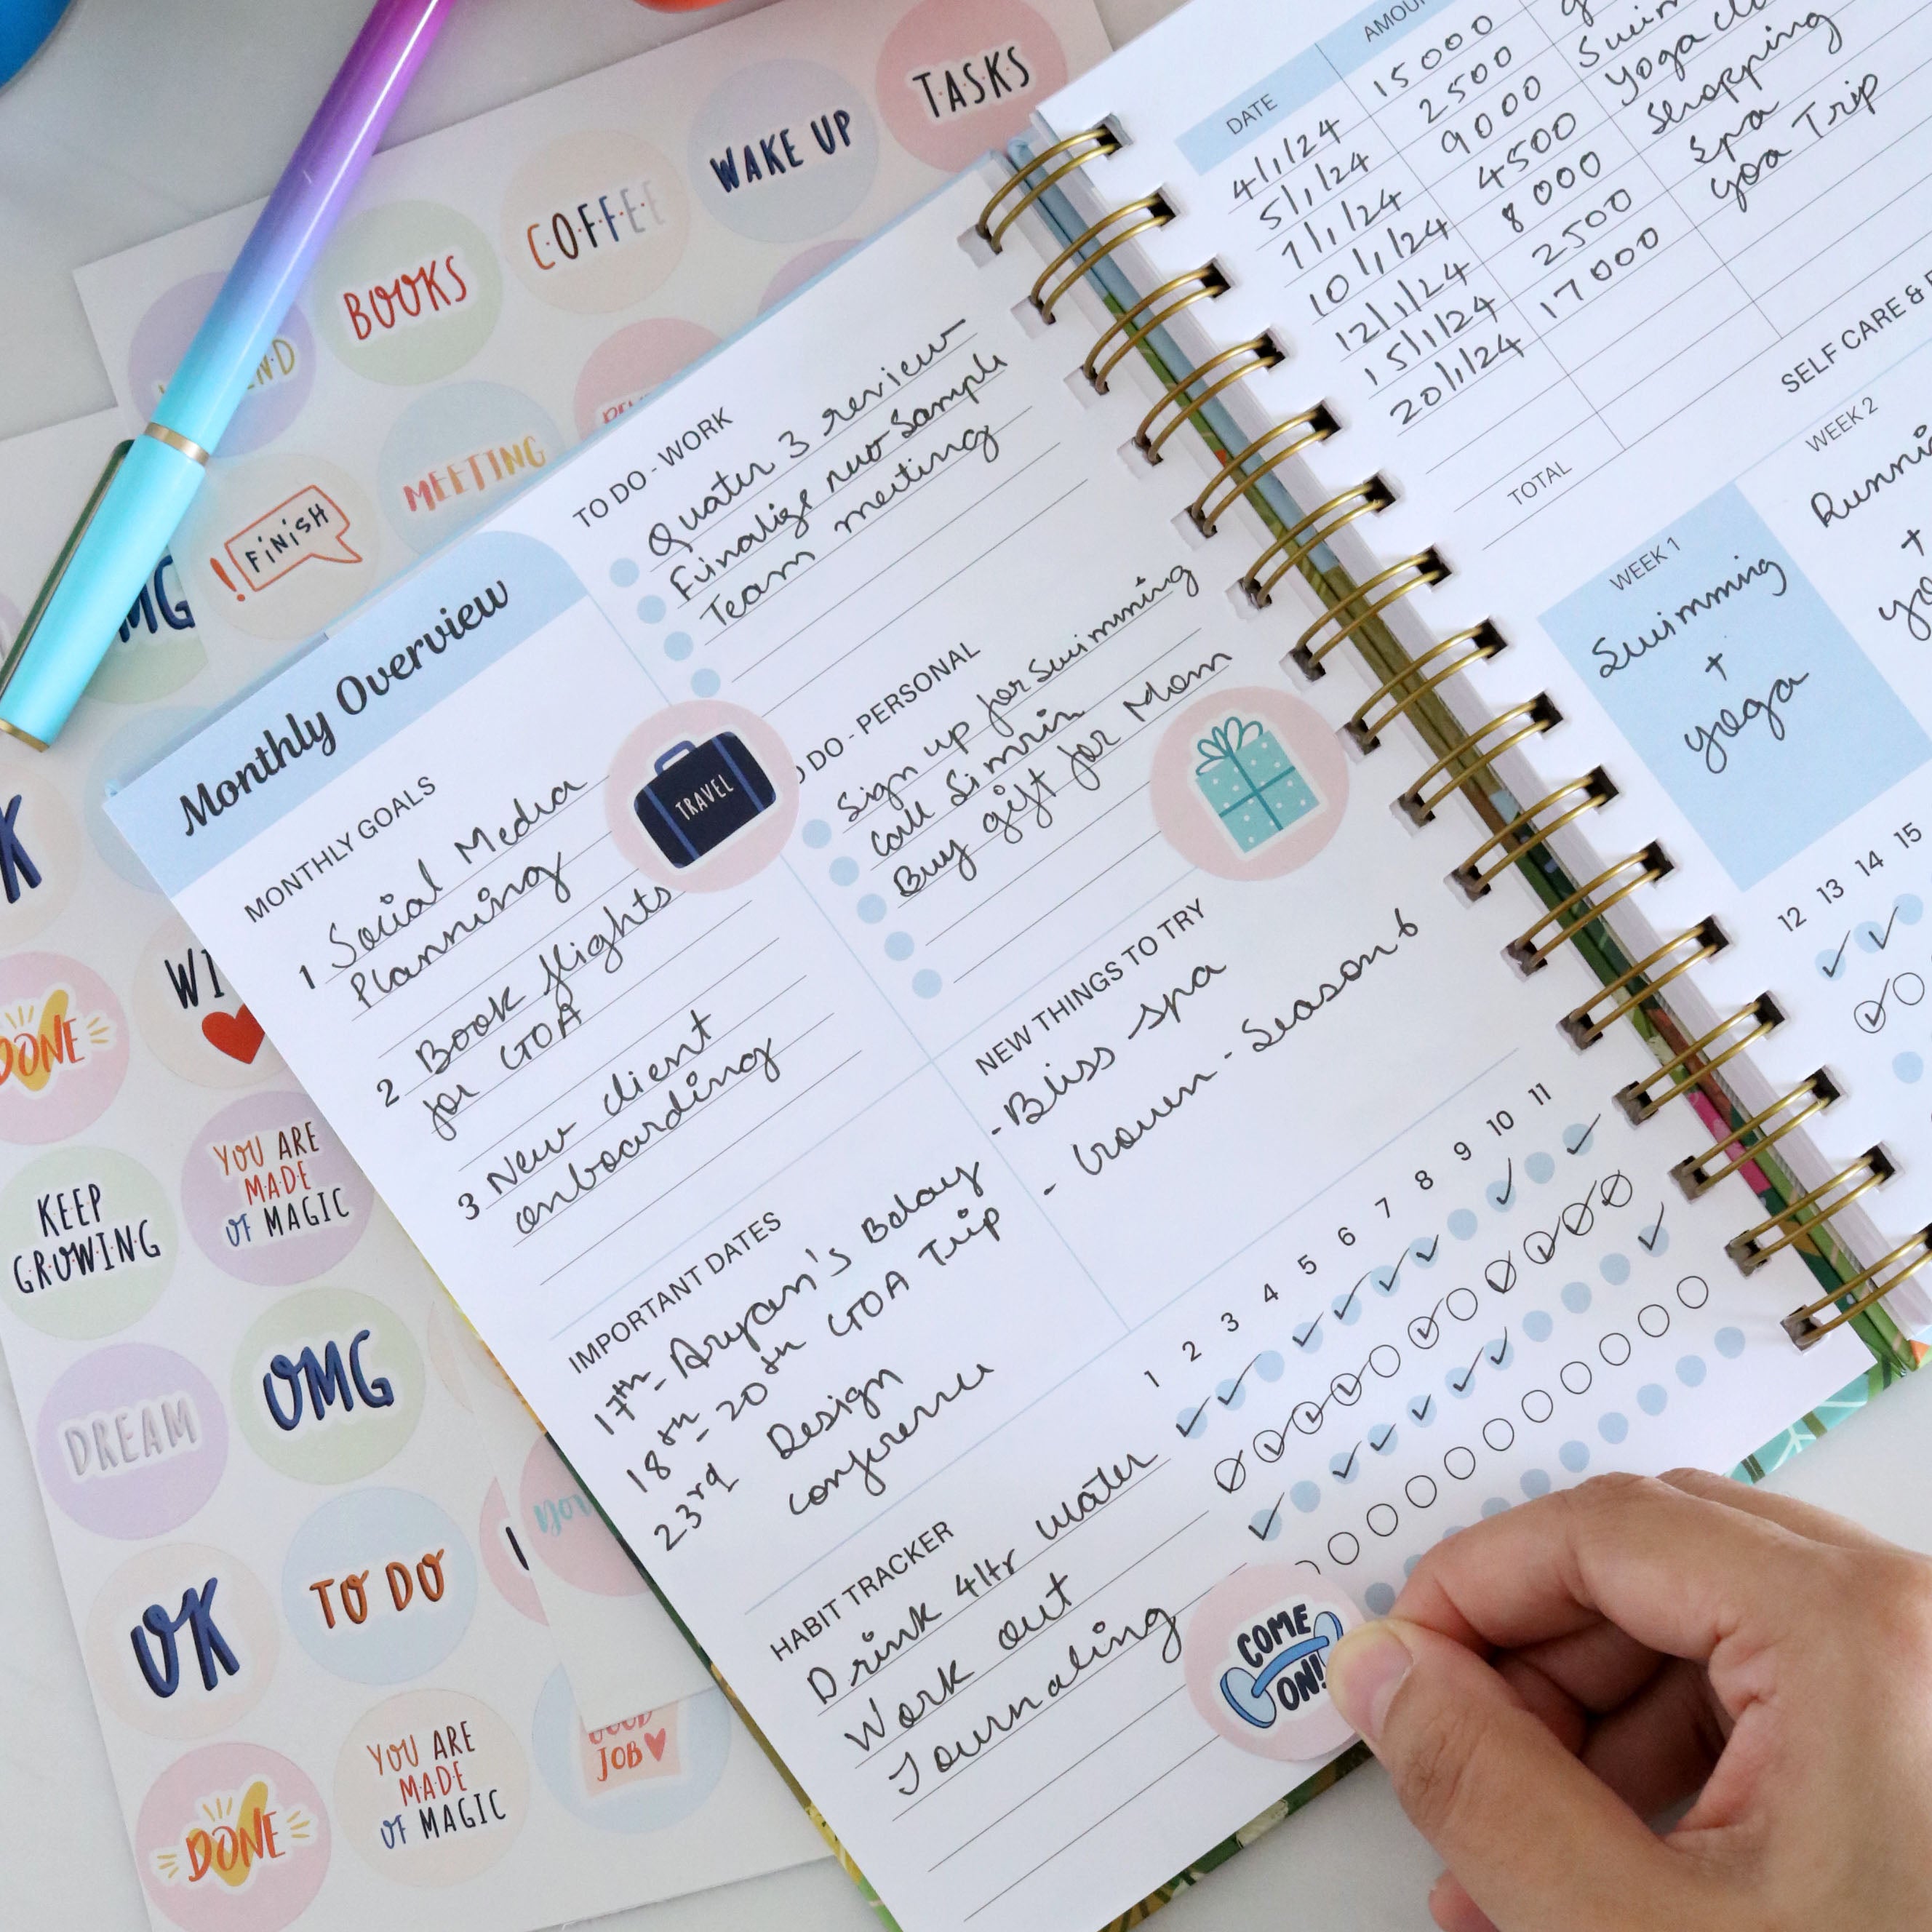 TASKS
WAKE UP
COFFEE
BOOKS
MEETING
FINISH
OMG
Monthly Overview
MONTHLY GOALS
1 Social Media
Planning
2 Book flights
for GOA
3 New client
onboarding
TRAVEL
TO DO - WORK
Quater 3 review
Finalize new sample
Team meeting
DO - PERSONAL
Sign up for Swimming
Call Simrin
Buy gift for Mom
NEW THINGS TO TRY
- Bliss spa
- Crown - Season 6
IMPORTANT DATES
17th - Aryan's Bday
18th - 20th GOA Trip
23rd Design
conference
HABIT TRACKER
1 2 3 4 5 6 7 8 9 10 11
Drink 4ltr water
Work out
Journaling
COME
ON!
DATE
4/1/24 15000
5/1/24 2500
7/1/24 9000
10/1/24 4500
12/1/24 8000
15/1/24 2500
20/1/24 17000
Shopping
Spa
goa Trip
TOTAL
SELF CARE &
WEEK 1
Swimming
+
yoga
WEEK 2
+
12 13 14 15
DONE
KEEP
GROWING
YOU ARE
MADE
OF MAGIC
DREAM
OMG
OK
TO DO
DONE
YOU ARE
MADE
OF MAGIC
GOOD
JOB